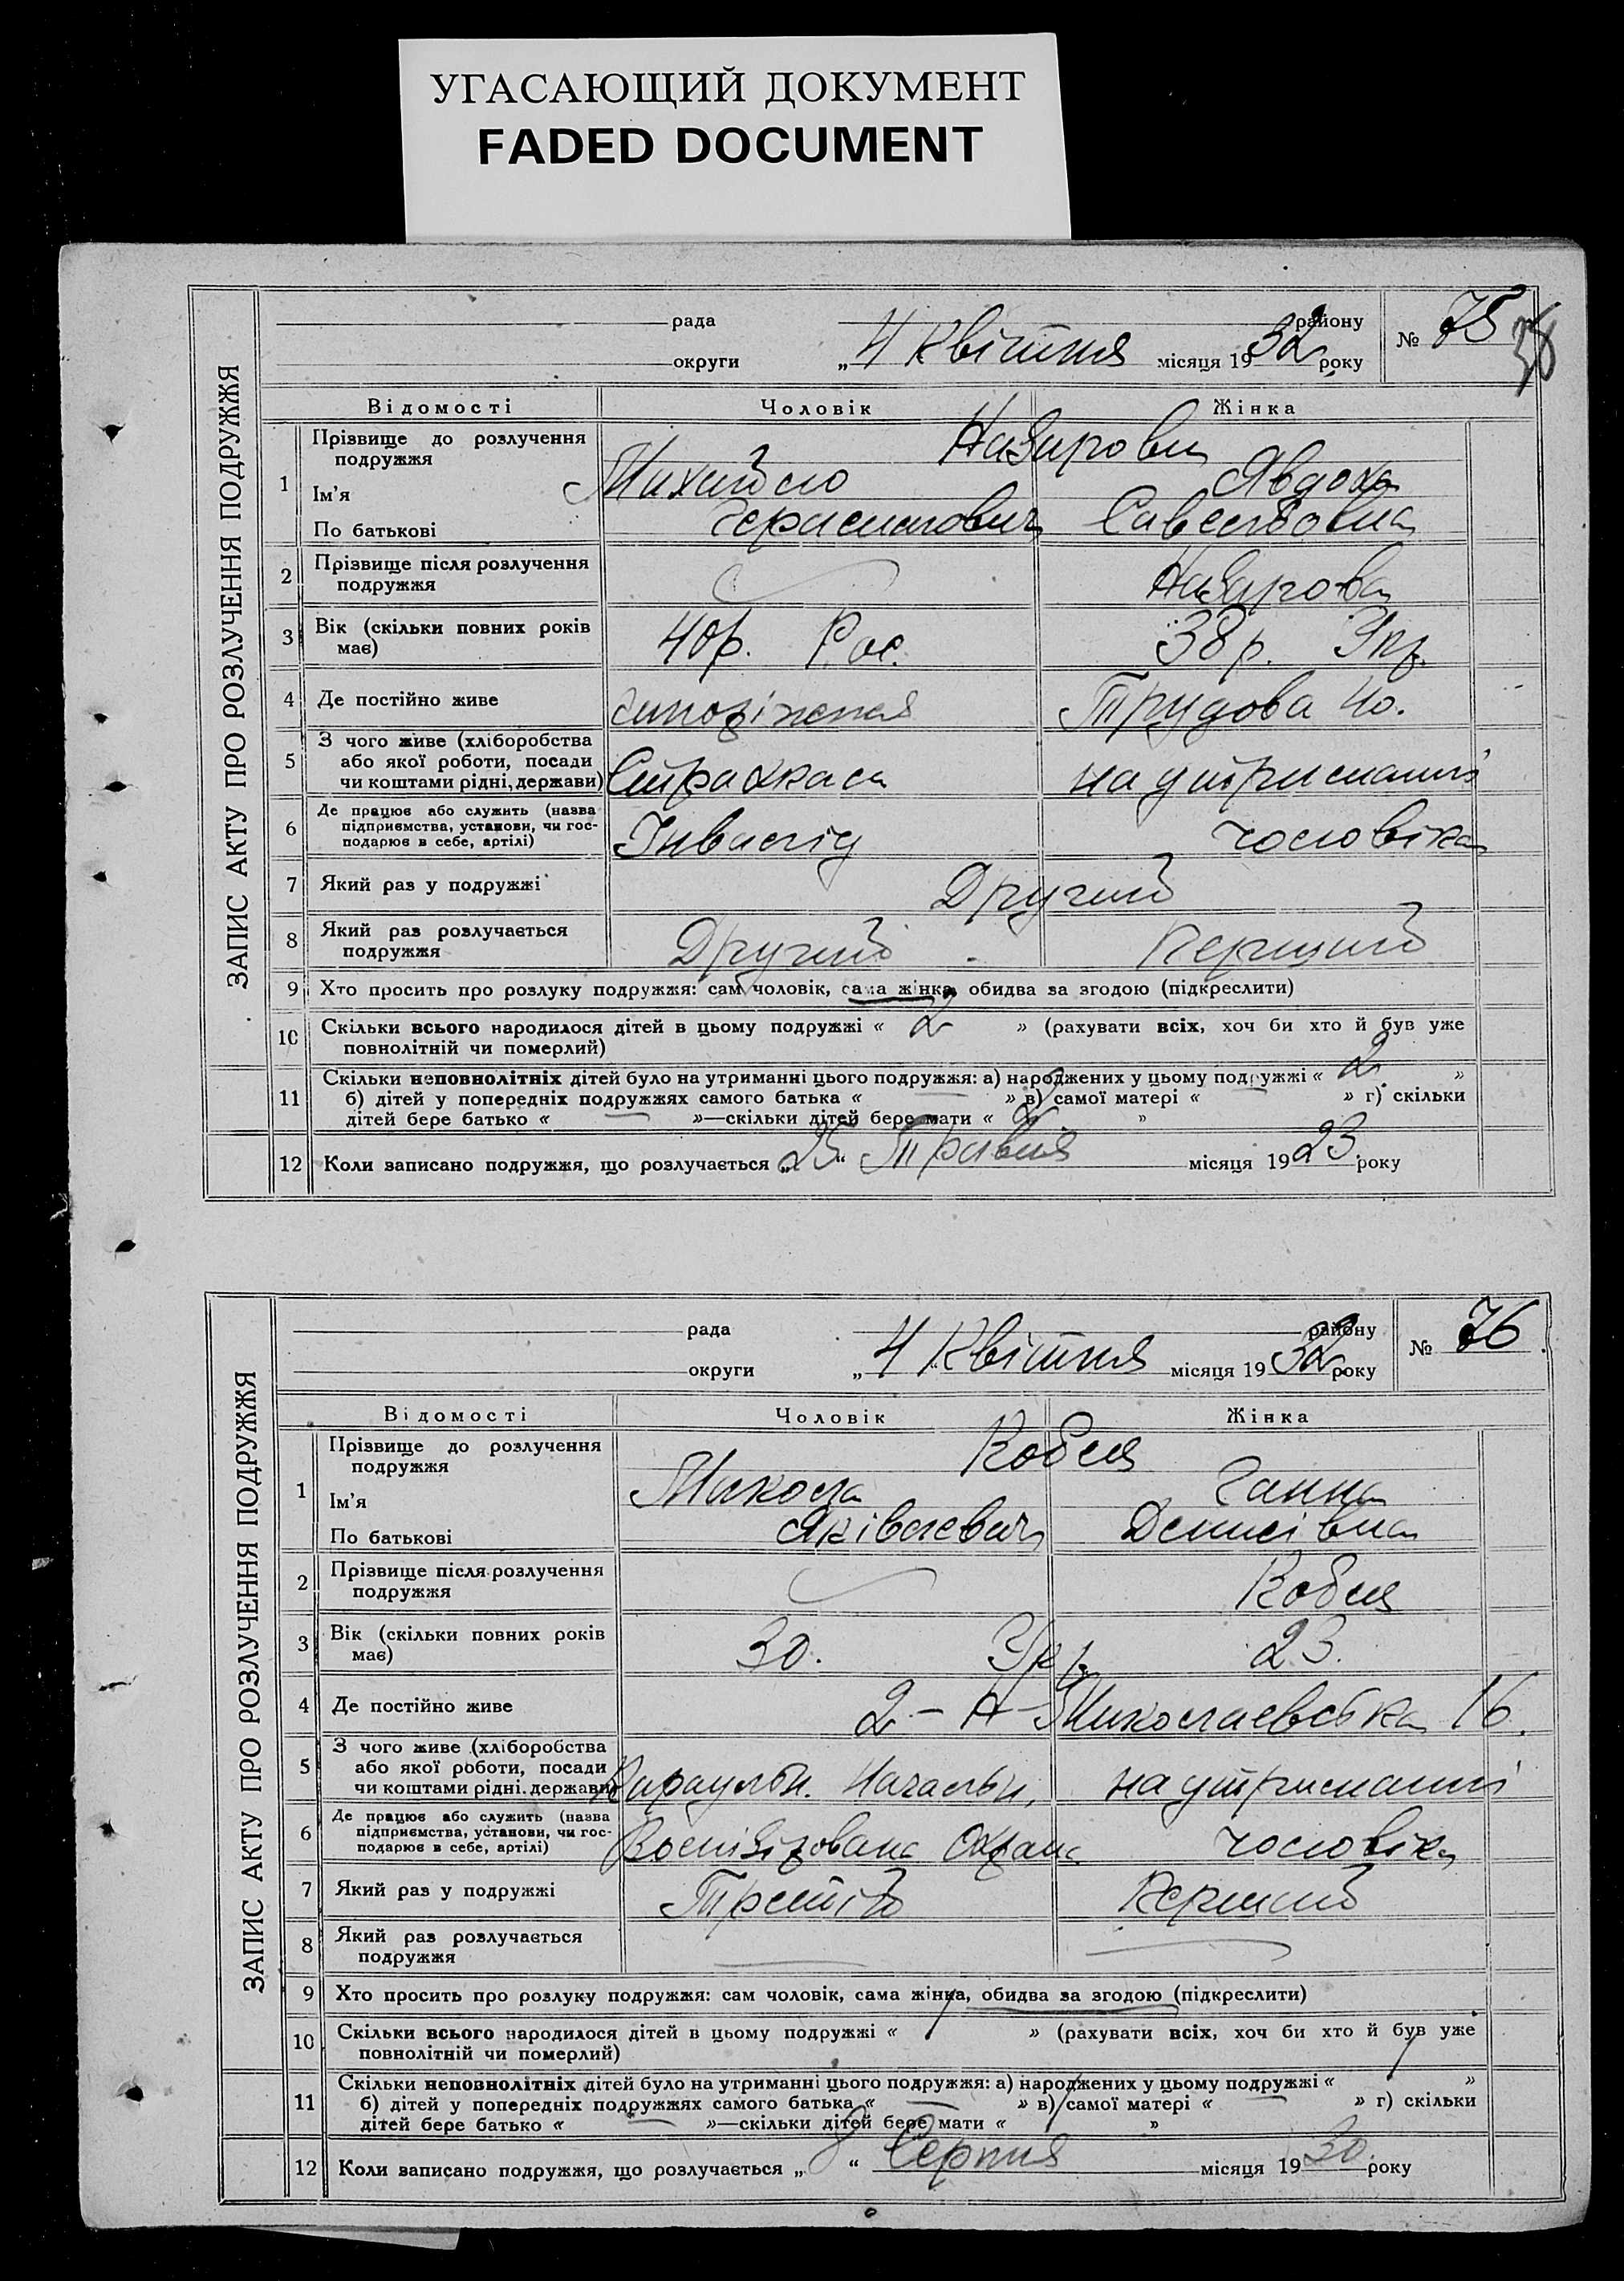 УГАСАЮЩИЙ ДОКУМЕНТ
FADED DOCUMENT
ЗАПИС АКТУ ПРО РОЗЛУЧЕННЯ ПОДРУЖЖЯ
рада району
№ 75
38
округи „4 Квітня місяця 1932 року
Відомості Чоловік Жінка
1 Прізвище до розлучення подружжя Назарови
Ім'я Михайло Явдоха
По батькові Герасимович Савелтовна
2 Прізвище після розлучення
подружжя Назарова
3 Вік (скільки повних років
має) 40 р. Рос. 38 р. Укр.
4 Де постійно живе Трудова 40.
5 З чого живе (хліборобства
або якої роботи, посади
чи коштами рідні, держави) Страхкаса на утриманні
6 Де працює або служить (назва
підприємства, установи, чи гос-
подарює в себе, артілі) Інвалід чоловіка
7 Який раз у подружжі Другий
8 Який раз розлучається
подружжя Другий Перший
9 Хто просить про розлуку подружжя: сам чоловік, сама жінка, обидва за згодою (підкреслити)
10 Скільки всього народилося дітей в цьому подружжі « 2 » (рахувати всіх, хоч би хто й був уже
повнолітній чи померлий)
11 Скільки неповнолітніх дітей було на утриманні цього подружжя: а) народжених у цьому подружжі « 2 »
б) дітей у попередніх подружжях самого батька « — » в) самої матері « — » г) скільки
дітей бере батько « — »—скільки дітей бере мати « 2 »
12 Коли записано подружжя, що розлучається „25“ Травня місяця 1923 року
ЗАПИС АКТУ ПРО РОЗЛУЧЕННЯ ПОДРУЖЖЯ
рада району
№ 76
округи „4 Квітня місяця 1932 року
Відомості Чоловік Жінка
1 Прізвище до розлучення
подружжя Кобля
Ім'я Микола Ганна
По батькові Яківлевич Денисівна
2 Прізвище після розлучення
подружжя Кобля
3 Вік (скільки повних років
має) 30. Укр. 23.
4 Де постійно живе 2-А-Миколаевська 16.
5 З чого живе (хліборобства
або якої роботи, посади
чи коштами рідні. держави) Караульн. Начальн, на утриманні
6 Де працює або служить (назва
підприємства, установи, чи гос-
подарює в себе, артілі) Воєнізірована Охрана чоловіка
7 Який раз у подружжі Третій Перший
8 Який раз розлучається
подружжя — —
9 Хто просить про розлуку подружжя: сам чоловік, сама жінка, обидва за згодою (підкреслити)
10 Скільки всього народилося дітей в цьому подружжі « 1 » (рахувати всіх, хоч би хто й був уже
повнолітній чи померлий)
11 Скільки неповнолітніх дітей було на утриманні цього подружжя: а) народжених у цьому подружжі « 1 »
б) дітей у попередніх подружжях самого батька « — » в) самої матері « — » г) скільки
дітей бере батько « — »—скільки дітей бере мати « 1 »
12 Коли записано подружжя, що розлучається „8“ Серпня місяця 1930. року